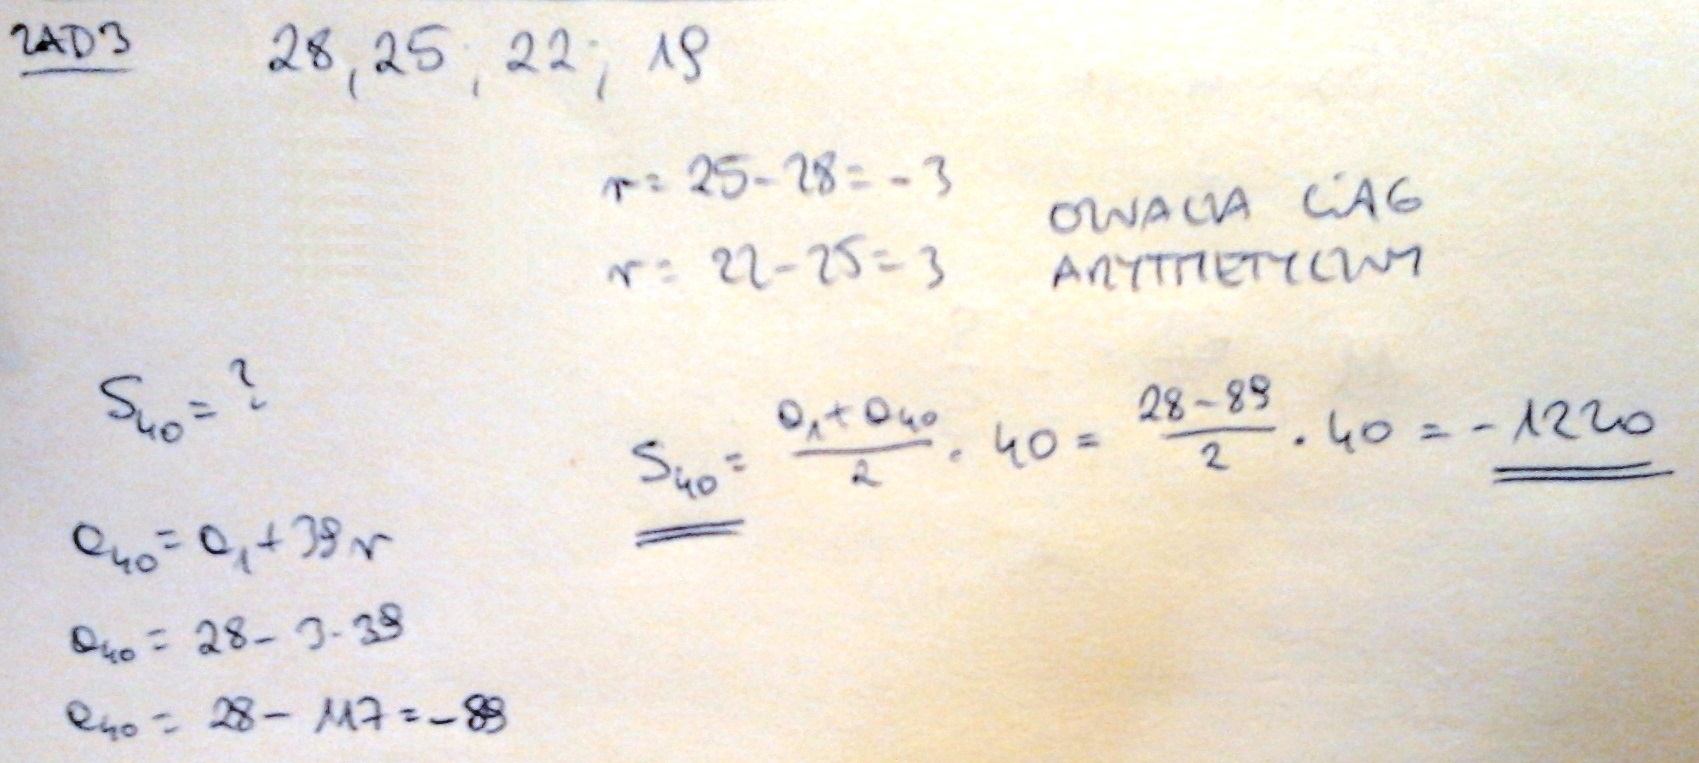 ZAD3 28, 25; 22; 19
r = 25 - 28 = -3
r = 22 - 25 = -3
OZNACZA CIĄG
ARYTMETYCZNY
S₄₀ = ?
S₄₀ = (a₁ + a₄₀)/2 · 40 = (28 - 89)/2 · 40 = -1220
a₄₀ = a₁ + 39r
a₄₀ = 28 - 3·39
a₄₀ = 28 - 117 = -89